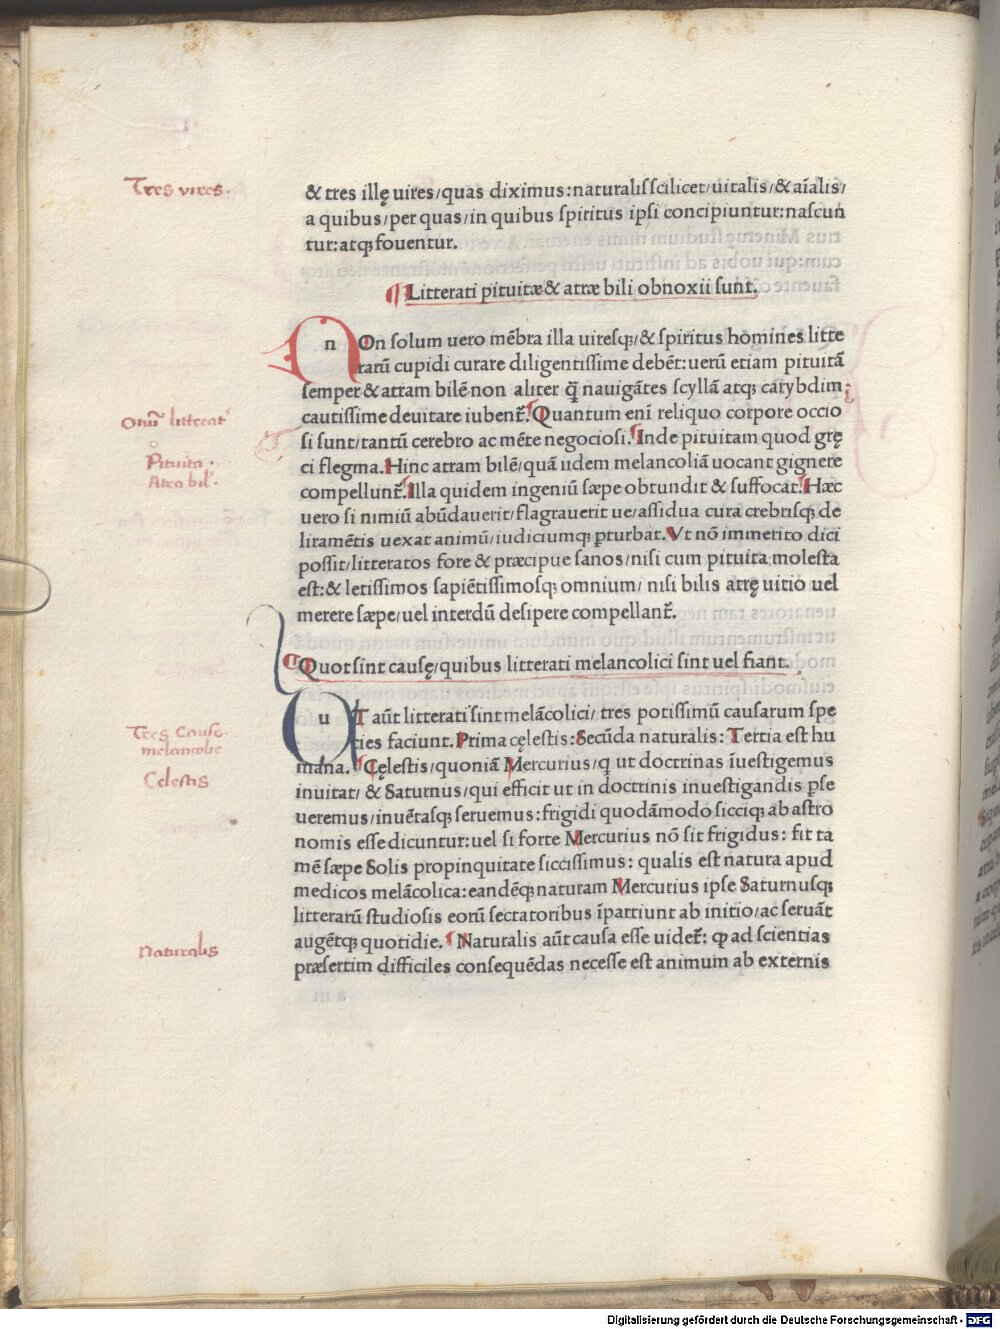 Tres vires.
& tres illę uires/quas diximus:naturalis scilicet/uitalis/& aĩalis/
a quibus/per quas/in quibus spiritus ipsi concipiuntur:nascun
tur:atq; fouentur.
Litterati pituitæ & atræ bili obnoxii sunt.
n On solum uero mẽbra illa uiresq;/& spiritus homines litte
rarũ cupidi curare diligentissime debẽt:uerũ etiam pituitã
semper & atram bilẽ non aliter q̃ nauigãtes scyllã atq; carybdim
cautissime deuitare iubent̃. Quantum enĩ reliquo corpore occio
si sunt/tantũ cerebro ac mẽte negociosi. Inde pituitam quod gre̜
ci flegma. Hinc atram bilẽ/quã iidem melancoliã uocant gignere
compellunt̃. Illa quidem ingeniũ sæpe obtundit & suffocat. Hæc
uero si nimiũ abũdauerit/flagrauerit ue/assidua cura crebrisq; de
liramẽtis uexat animũ/iudiciumq; ꝑturbat. Vt nõ immerito dici
possit/litteratos fore & præcipue sanos/nisi cum pituita molesta
est:& letissimos sapiẽtissimosq; omnium/ nisi bilis atrę uitio uel
merere sæpe/uel interdũ desipere compellant̃.
Pituita.
Atra bil'.
Quot sint causę/quibus litterati melancolici sint uel fiant.
u T aũt litterati sint melãcolici/ tres potissimũ causarum spe
cies faciunt. Prima cęlestis: Secũda naturalis: Tertia est hu
mana. Cęlestis/quoniã Mercurius/q ut doctrinas ĩuestigemus
inuitat/ & Saturnus/qui efficit ut in doctrinis inuestigandis ꝑse
ueremus/inuẽtasq; seruemus:frigidi quodãmodo siccíq; ab astro
nomis esse dicuntur:uel si forte Mercurius nõ sit frigidus: fit ta
mẽ sæpe Solis propinquitate siccissimus: qualis est natura apud
medicos melãcolica:eandẽq; naturam Mercurius ipse Saturnusq;
litterarũ studiosis eorũ sectatoribus ĩpartiunt ab initio/ac seruãt
augẽtq; quotidie. Naturalis aũt causa esse uidet̃: ꝙ ad scientias
præsertim difficiles consequẽdas necesse est animum ab externis
Tres Cause
melancolie
Celestis
Naturalis
Digitalisierung gefördert durch die Deutsche Forschungsgemeinschaft - DFG